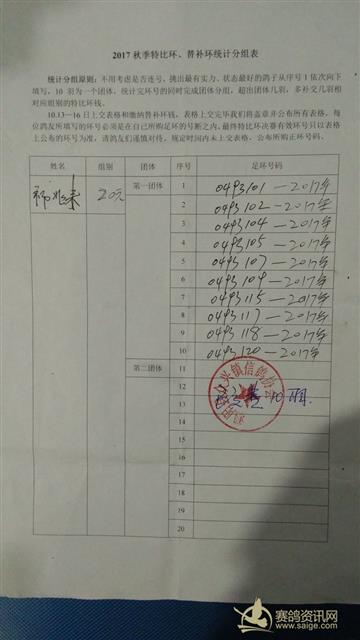 2017 秋季特比环、替补环统计分组表
统计分组原则：不用考虑是否连号，挑出最有实力、状态最好的鸽子从序号 1 依次向下
填写，10 羽为一个团体，统计环号的同时完成团体分组，超出团体几羽，多补交几羽相
对应组别的特比环钱。
10.13—16 日上交表格和缴纳替补环钱，表格上交完毕我们将盖章并公布所有表格，每
位鸽友所填写的环号必须是在自己所购足环的号断之内，最终特比环决赛有效环号只以表格
上公布的环号为准，请鸽友们谨慎对待，规定时间内未上交表格，公布所购正环号码。
姓名 组别 团体 序号 足环号码
20元 第一团体 1 0493101—2017年
2 0493102—2017年
3 0493104—2017年
4 0493105—2017年
5 0493107—2017年
6 0493109—2017年
7 0493115—2017年
8 0493117—2017年
9 0493118—2017年
10 0493120—2017年
第二团体 11
12
13 10羽
14
15
16
17
18
19
20
兴镇信鸽协会
赛鸽资讯网
www.saige.com